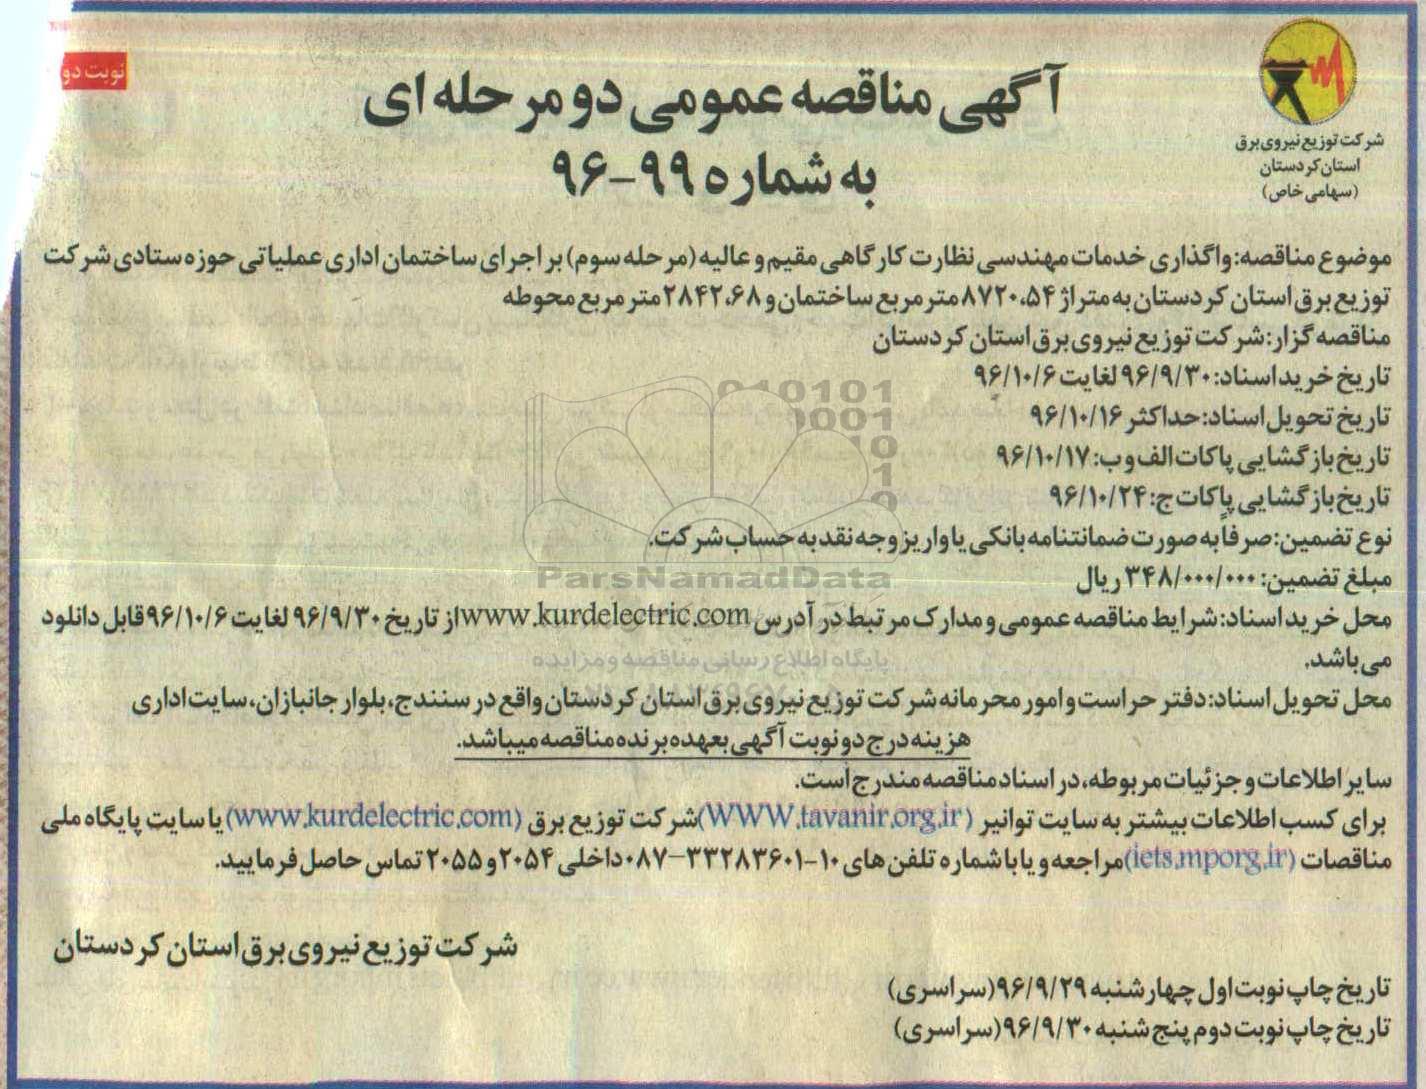 نوبت دو
شرکت توزیع نیروی برق
استان کردستان
(سهامی خاص)
آگهی مناقصه عمومی دو مرحله ای
به شماره ۹۹-۹۶
موضوع مناقصه: واگذاری خدمات مهندسی نظارت کارگاهی مقیم و عالیه (مرحله سوم) بر اجرای ساختمان اداری عملیاتی حوزه ستادی شرکت
توزیع برق استان کردستان به متراژ ۸۷۲۰،۵۴ متر مربع ساختمان و ۲۸۴۲،۶۸ متر مربع محوطه
مناقصه گزار: شرکت توزیع نیروی برق استان کردستان
تاریخ خرید اسناد: ۹۶/۹/۳۰ لغایت ۹۶/۱۰/۶
تاریخ تحویل اسناد: حداکثر ۹۶/۱۰/۱۶
تاریخ بازگشایی پاکات الف و ب: ۹۶/۱۰/۱۷
تاریخ بازگشایی پاکات ج: ۹۶/۱۰/۲۴
نوع تضمین: صرفاً به صورت ضمانتنامه بانکی یا واریز وجه نقد به حساب شرکت.
مبلغ تضمین: ۳۴۸/۰۰۰/۰۰۰ ریال
محل خرید اسناد: شرایط مناقصه عمومی و مدارک مرتبط در آدرس www.kurdelectric.com از تاریخ ۹۶/۹/۳۰ لغایت ۹۶/۱۰/۶ قابل دانلود
می باشد.
محل تحویل اسناد: دفتر حراست و امور محرمانه شرکت توزیع نیروی برق استان کردستان واقع در سنندج، بلوار جانبازان، سایت اداری
هزینه درج دو نوبت آگهی بعهده برنده مناقصه میباشد.
سایر اطلاعات و جزئیات مربوطه، در اسناد مناقصه مندرج است.
برای کسب اطلاعات بیشتر به سایت توانیر (WWW.tavanir.org.ir) شرکت توزیع برق (www.kurdelectric.com) یا سایت پایگاه ملی
مناقصات (iets.mporg.ir) مراجعه و یا با شماره تلفن های ۱۰-۳۳۲۸۳۶۰۱-۰۸۷ داخلی ۲۰۵۴ و ۲۰۵۵ تماس حاصل فرمایید.
شرکت توزیع نیروی برق استان کردستان
تاریخ چاپ نوبت اول چهارشنبه ۹۶/۹/۲۹ (سراسری)
تاریخ چاپ نوبت دوم پنج شنبه ۹۶/۹/۳۰ (سراسری)
ParsNamadData
پایگاه اطلاع رسانی مناقصه و مزایده